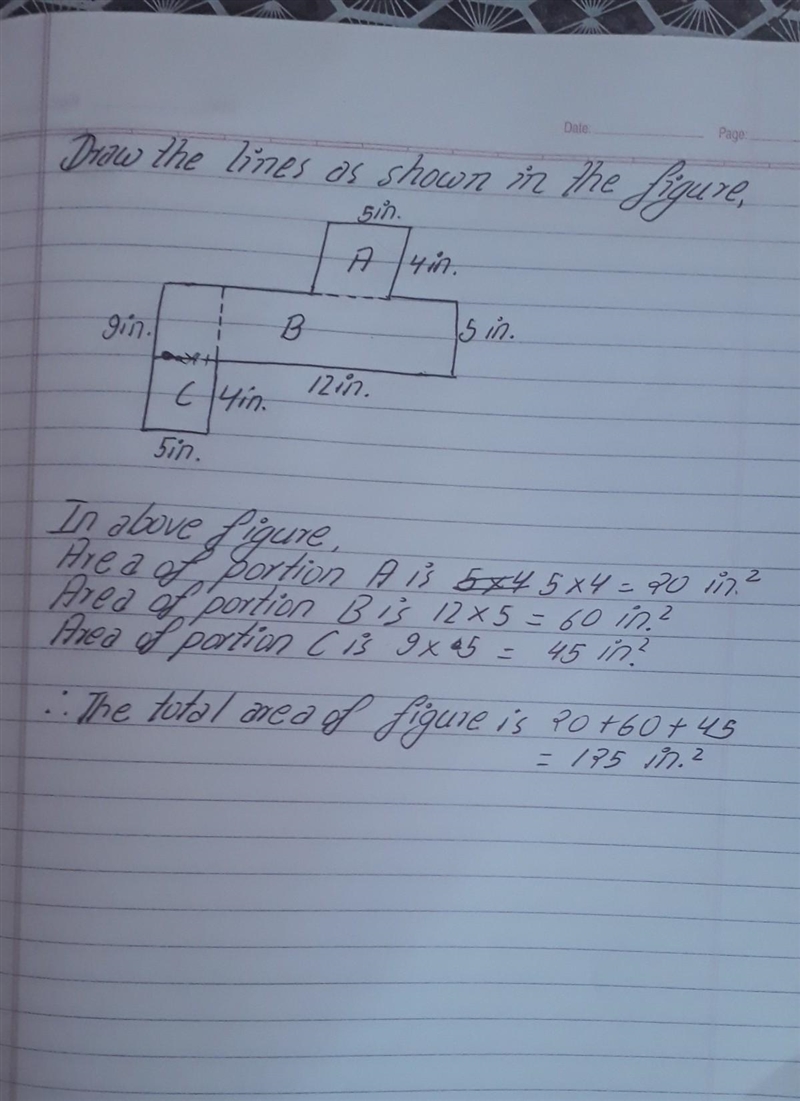 Date. Page
Draw the lines as shown in the figure,
5in.
A 4in.
9in. B 5 in.
C 4in. 12in.
5in.
In above figure,
Area of portion A is 5×4 5×4 = 20 in.²
Area of portion B is 12×5 = 60 in.²
Area of portion C is 9×5 = 45 in.²
∴ The total area of figure is 20+60+45
= 125 in.²